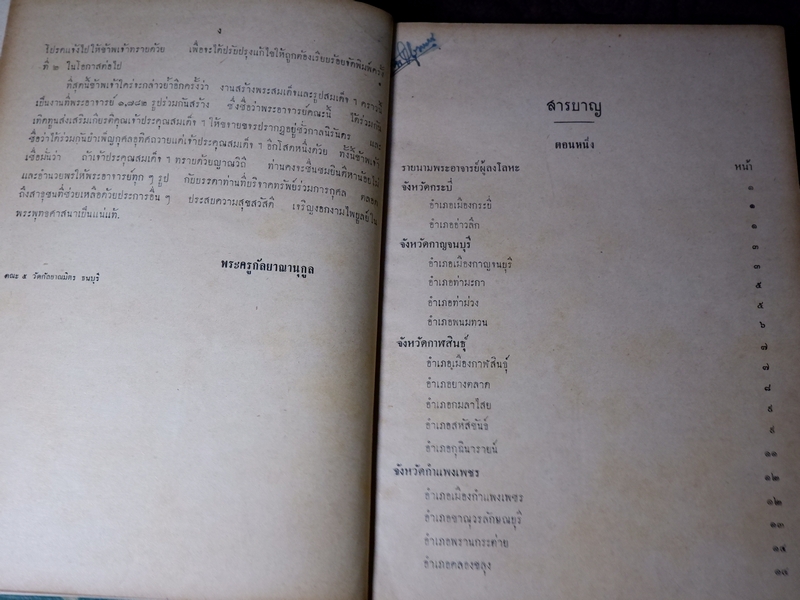 ง
โปรดแจ้งไปให้ข้าพเจ้าทราบด้วย เพื่อจะได้ปรับปรุงแก้ไขให้ถูกต้องเรียบร้อยจัดพิมพ์ครั้ง
ที่ ๒ ในโอกาสต่อไป
ที่สุดนี้ข้าพเจ้าใคร่จะกล่าวย้ำอีกครั้งว่า งานสร้างพระสมเด็จและรูปสมเด็จ ฯ คราวนี้
เป็นงานที่พระอาจารย์ ๑,๘๘๒ รูปร่วมกันสร้าง ซึ่งชื่อว่าพระอาจารย์คณะนี้ ได้ร่วมกัน
เทิดทูนส่งเสริมเกียรติคุณเจ้าประคุณสมเด็จ ฯ ให้ขจายขจรปรากฏอยู่ชั่วกาลนิรันดร และ
ชื่อว่าได้ร่วมกันบำเพ็ญกุศลอุทิศถวายแด่เจ้าประคุณสมเด็จ ฯ อีกโสดหนึ่งด้วย ทั้งนี้ข้าพเจ้า
เชื่อมั่นว่า ถ้าเจ้าประคุณสมเด็จ ฯ ทราบด้วยญาณวิถี ท่านคงจะชื่นชมยินดีหาน้อยไม่
และอำนวยพรให้พระอาจารย์ทุก ๆ รูป กับบรรดาท่านที่บริจาคทรัพย์ร่วมการกุศล ตลอด
ถึงสาธุชนที่ช่วยเหลือด้วยประการอื่น ๆ ประสบความสุขสวัสดี เจริญงอกงามไพบูลย์ใน
พระพุทธศาสนาเป็นแน่แท้.
พระครูกัลยาณานุกูล
คณะ ๕ วัดกัลยาณมิตร ธนบุรี
สารบาญ
ตอนหนึ่ง
รายนามพระอาจารย์ผู้ลงโลหะ หน้า
จังหวัดกระบี่ ๑
อำเภอเมืองกระบี่ ๑
อำเภออ่าวลึก ๑
จังหวัดกาญจนบุรี ๓
อำเภอเมืองกาญจนบุรี ๓
อำเภอท่ามะกา ๕
อำเภอท่าม่วง ๕
อำเภอพนมทวน ๖
จังหวัดกาฬสินธุ์ ๗
อำเภอเมืองกาฬสินธุ์ ๗
อำเภอยางตลาด ๘
อำเภอกมลาไสย ๙
อำเภอสหัสขันธ์ ๙
อำเภอกุฉินารายณ์ ๑๑
จังหวัดกำแพงเพชร ๑๒
อำเภอเมืองกำแพงเพชร ๑๒
อำเภอขาณุวรลักษณบุรี ๑๓
อำเภอพรานกระต่าย ๑๔
อำเภอคลองขลุง